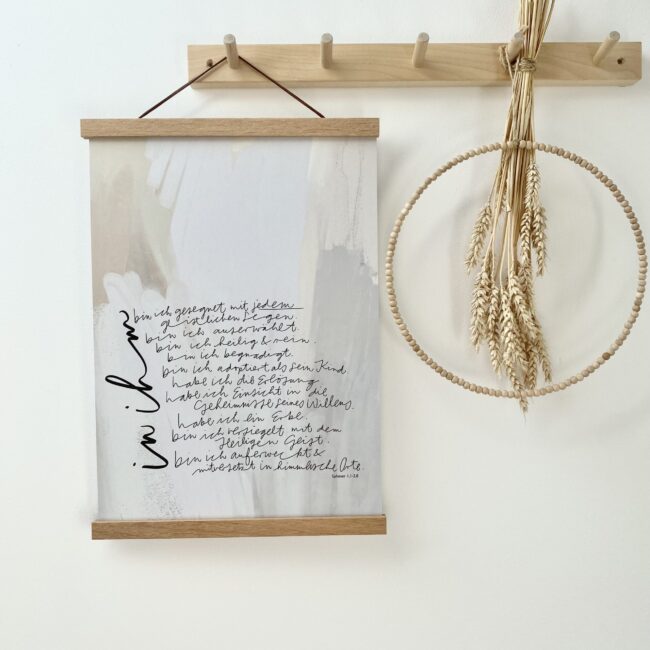 in ihm
bin ich gesegnet mit jedem
geistlichen Segen.
bin ich auserwählt.
bin ich heilig & rein.
bin ich begnadigt.
bin ich adoptiert als sein Kind.
habe ich die Erlösung.
habe ich Einsicht in die
Geheimnisse seines Willens.
habe ich ein Erbe.
bin ich versiegelt mit dem
Heiligen Geist.
bin ich auferweckt &
mitversetzt in himmlische Orte.
Epheser 1,1-2,6